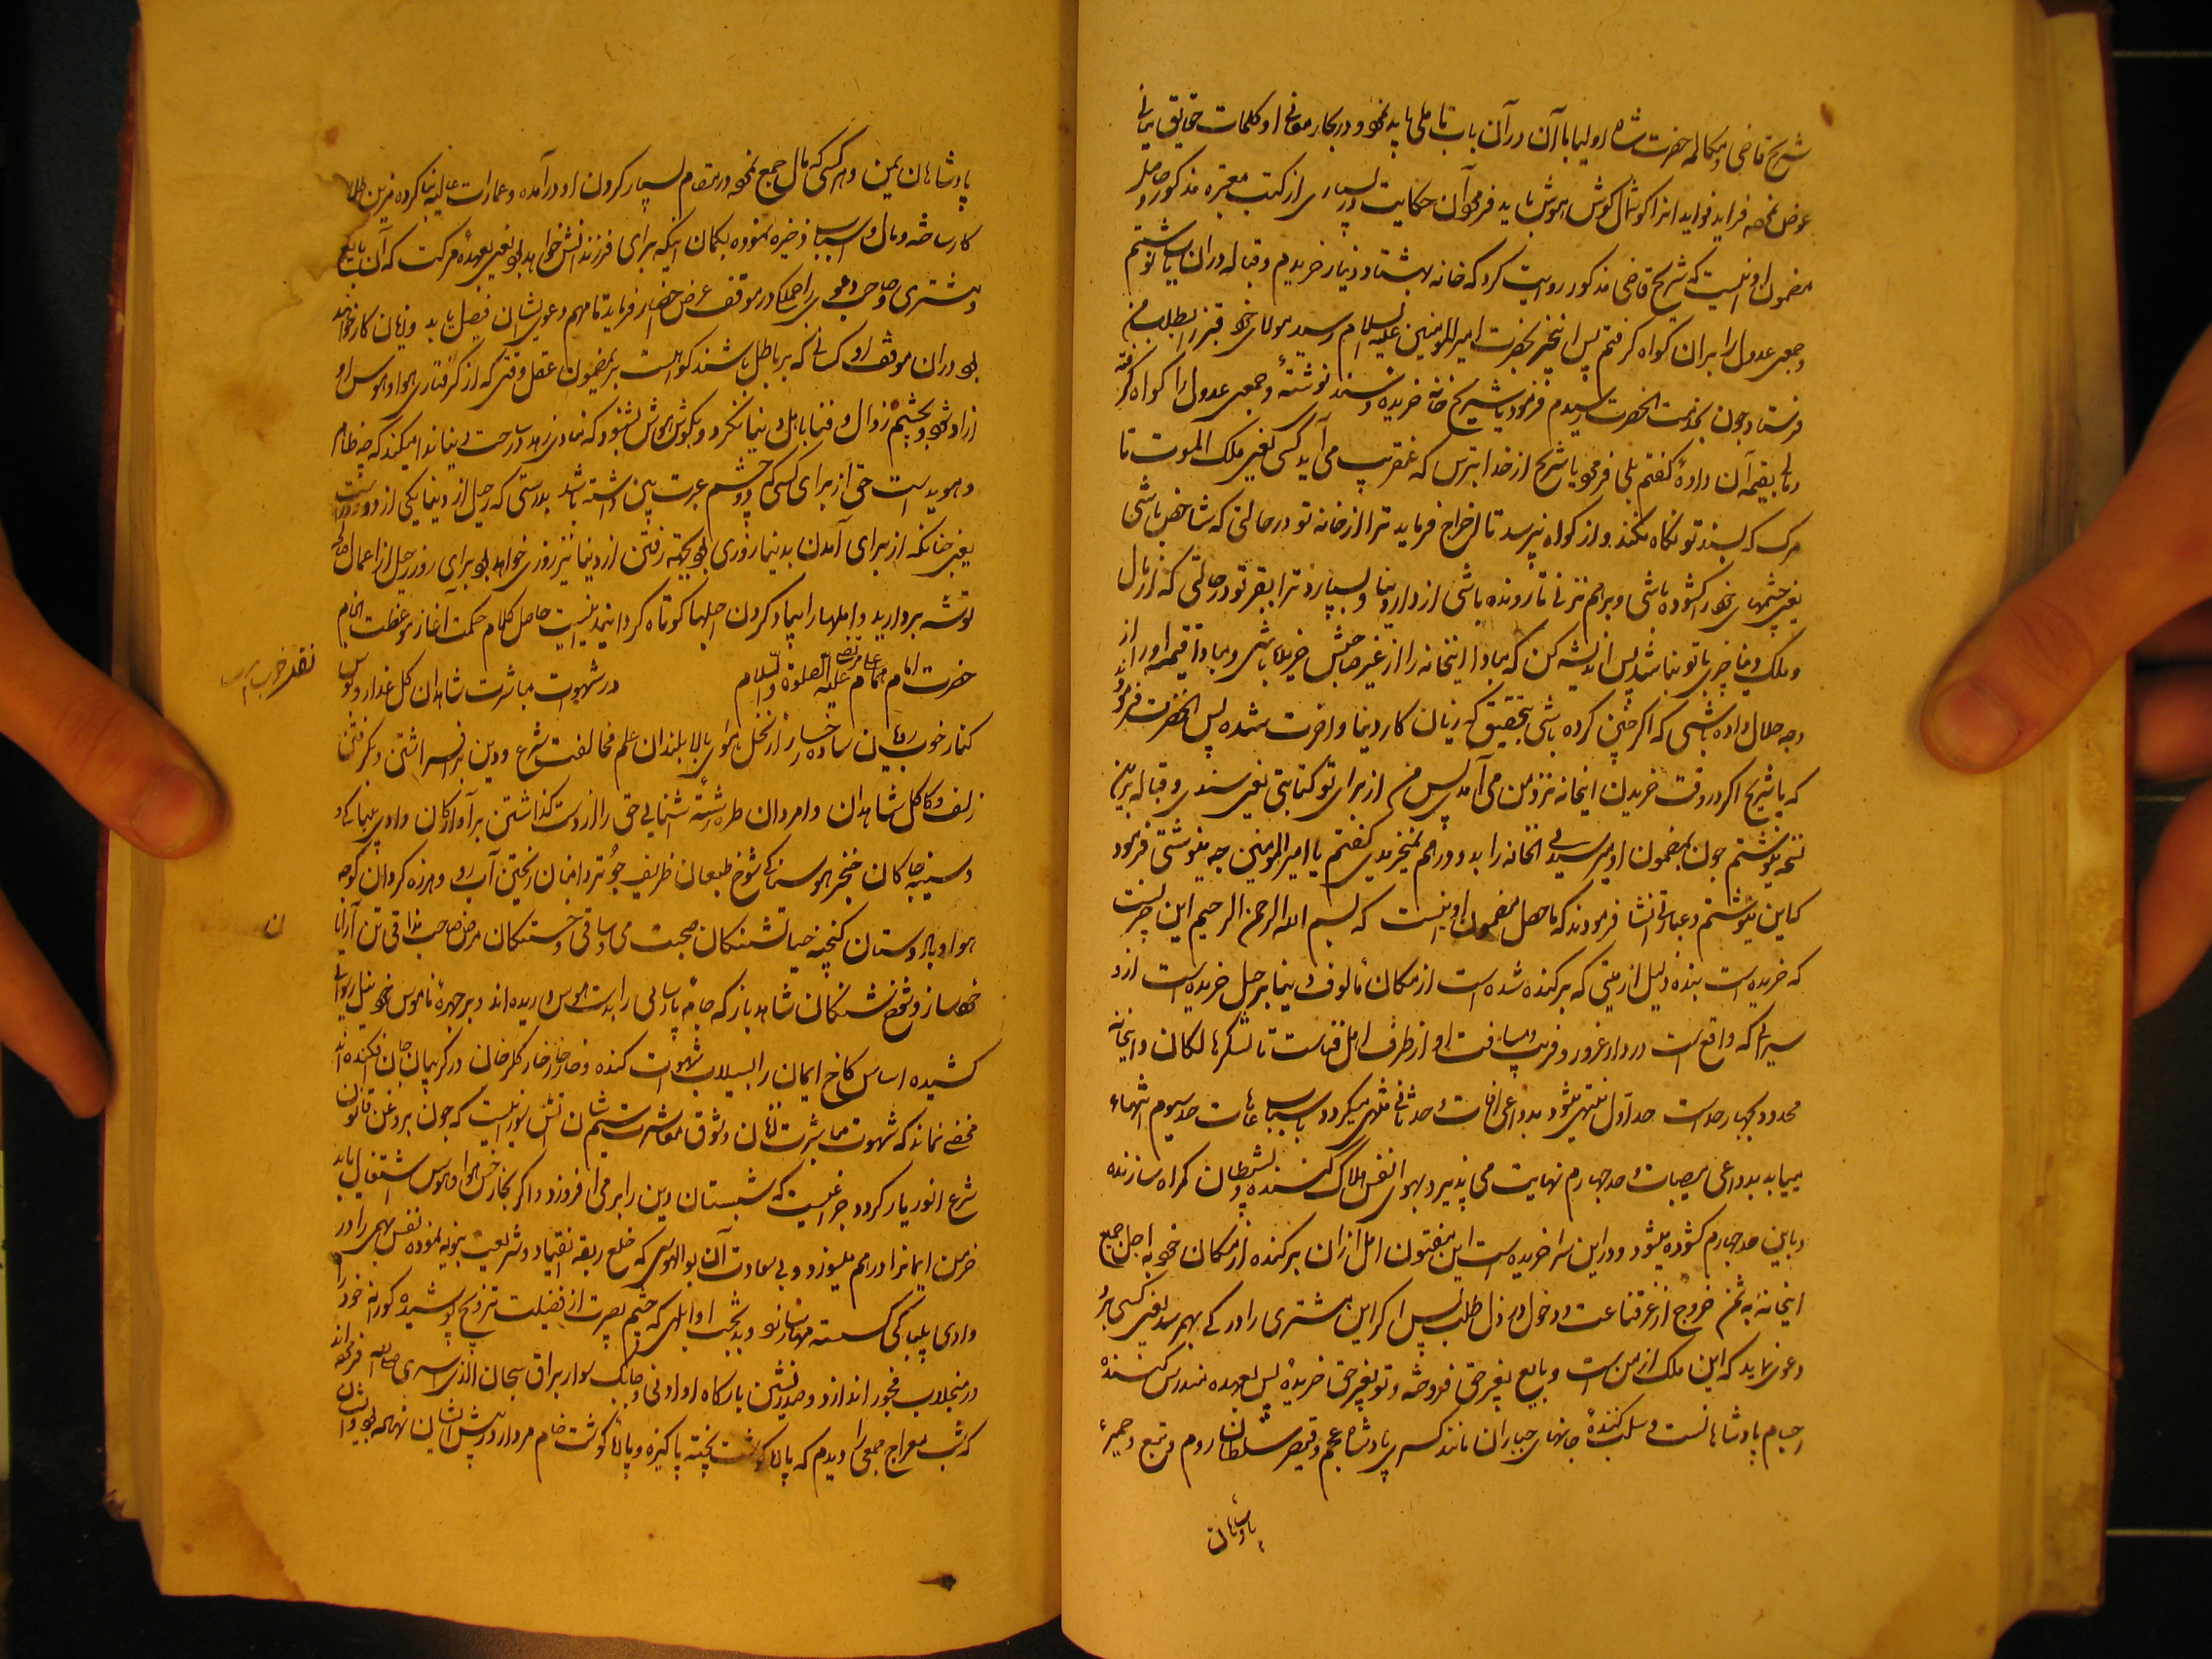 شریح قاضی و مکالمه حضرت شاه اولیا با آن در آن باب تاملی باید نمود و در بحار معانی او کلمات حقایق
غوص نموده فراید فواید انرا کوشال کوش هوش باید فرمود آن حکایت در بسیاری از کتب معتبره مذکور و حاصل
مضمون او اینست که شریح قاضی مذکور روایت کرد که خانه بهشتاد دینار خریدم و قباله در ان باب نوشتم
و جمعی عدول را بران کواه کرفتم پس این خبر بحضرت امیر المومنین علیه السلام رسید مولای خود قنبر را بطلب من
فرستاد چون بخدمت انحضرت رسیدم فرمود یا شریح خانه خریده و سند نوشتهٔ و جمعی عدول را کواه کرفته
و مال بقیمه آن دادهٔ کفتم بلی فرمود یا شریح از خدا بترس که عنقریب می آید کسی یعنی ملک الموت تا
مرک که بسند تو نکاه نکند و از کواه نپرسد تا اخراج فرماید ترا از خانه تو در حالتی که شاخص باشی
یعنی چشمهای خود را کشوده باشی و برهم نزنی تا رونده باشی از دار دنیا و بسپارد ترا بقبر تو در حالتی که از مال
و ملک دنیا چیزی با تو نباشد پس اندیشه کن که مبادا اینخانه را از غیر صاحبش خریده باشی و مبادا قیمت او را از
وجه حلال نداده باشی که اکر چنین کرده باشی بتحقیق که زیان کار دنیا و اخرت شده پس انحضرت فرمود
که یا شریح اکر در وقت خریدن اینخانه نزد من می آمدی پس من از برای تو کتابتی یعنی سندی و قباله برین
نسخه مینوشتم چون بمضمون او میرسیدی انخانه را بدو درهم نمیخریدی کفتم یا امیر المومنین چه مینوشتی فرمود
که این مینوشتم و عبارتی انشا فرمودند که ماحصل مضمون او اینست که بسم الله الرحمن الرحیم این چیزیست
که خریده است بنده ذلیل از میتی که برکنده شده است از مکان مالوف دنیا برحیل خریده است ازو
سرایی که واقعست در دار غرور و فریب و مسافت او از طرف اهل فناست تا لشکر هالکان و اینخانه
محدود بچهار حد است حد اول منتهی میشود بدواعی افات و حد ثانی منتهی میکردد باسباب عاهات حد سیوم انتهاء
میباید بدواعی مصیبات و حد چهارم نهایت می پذیرد بهوای نفس هلاک کننده و شیطان کمراه سازنده
و باین حد چهارم کشوده میشود و در این سرا خریده است این مفتون امل از ان برکنده از مکان خود به اجل جمیع
اینخانه به ثمن خروج از عز قناعت و دخول در ذل طلب پس اکر این مشتری را درکی بهم رسد یعنی کسی برو
دعوی نماید که این ملک از من است و بایع بغیر حق فروخته و تو بغیر حق خریدهٔ پس بعهده مندرس کننده
اجسام پادشاهانست و سلب کنندهٔ جانهای جباران مانند کسری پادشاه عجم و قیصر سلطان روم و تبع و حمیر
پادشاهان
پادشاهان یمن و هر کسی که مال جمع نمود در مقام بسیار کردن او در آمده و عمارات عالیه بنا کرده مزین بطلا
کار ساخته و مال و اسباب ذخیره نموده بکمان اینکه برای فرزندانش خواهد بود یعنی بعهدهٔ مرکست که آن بایع
و مشتری و صاحب دعوی را جملگا در موقف عرض حاضر فرماید تا مهم دعوی ایشان فیصل یابد و زیان کار خواهند
بود دران موقف او کسانی که بر باطل باشند کواهست برین مضمون عقل وقتی که از کرفتاری هوا و هوس او
ازاد شود و بچشم زوال و فنا باهل دنیا نکرد و بکوش هوش بشنود که منادی زهد در ساحت دنیا ندا میکند که چه ظاهر
و هویداست حق از برای کسی که دو چشم عبرت بین داشته باشد بدرستی که رحیل از دنیا یکی از دو روز است
یعنی چنانکه از برای آمدن بدنیا روزی بود بجهة رفتن از دنیا نیز روزی خواهد بود برای روز رحیل از اعمال صالحه
توشه بردارید و املها را بیاد کردن اجلها کوتاه کردانید اینست حاصل کلام حکمت آغاز موعظت انجام
حضرت امام همام علی مرتضی علیه الصلوة و السلام در شهوت مباشرت شاهدان کل عذار و بوس
کنار خوب رویان ساده رخسار از نخل هوای بالا بلندان علم مخالفت شرع و دین بر افراشتن و بکرفتن
زلف و کاکل شاهدان و امردان طره رشته اشنایی حق را از دست کذاشتن بر آوارکان وادی بیباکی و
و سینه چاکان خنجر هوسناکی شوخ طبعان ظریف جو تردامنان ریختن آب رو و هرزه کردان کوچه
هوا و باز دوستان کنجینه حیا تشنکان صحبت می و ساقی و خستکان مرض صاحب مذاقی تن آرایان
خودساز و شوخ شنکان شاهد باز که جامه پارسایی را بدست هوس دریده اند و بر چهرهٔ ناموس خود نیل رسوایی
کشیده اساس کاخ ایمان را بسیلاب شهوت کنده و خار خار کلرخان در کریبان جان فکنده اند
مخفی نماند که شهوت مباشرت زنان و ذوق معاشرت ایشان آتش سوزیست که چون بروغن قانون
شرع انور یار کردد چراغیست که شبستان دین را بر می افروزد و اکر بخار خس هوا و هوس اشتعال یابد
خرمن ایمانرا درهم میسوزد و بی سعادت آن بوالهوسی که خلع ربقه انقیاد شریعت نبویه نموده نفس بهیمی را در
وادی بیباکی کسسته مهار سازد و بدبخت او ابلهی که چشم بصیرت از فضیلت تزویج پوشیده کورانه خود را
در منجلاب فجور اندازد و صدرنشین بارکاه او ادنی و چابک سوار براق سبحان الذی اسری صلعم فرموده اند
که شب معراج جمعی را دیدم که پارهٔ کوشت پخته پاکیزه و پارهٔ کوشت خام مردار در پیش ایشان نهاده بود و ایشان
ن